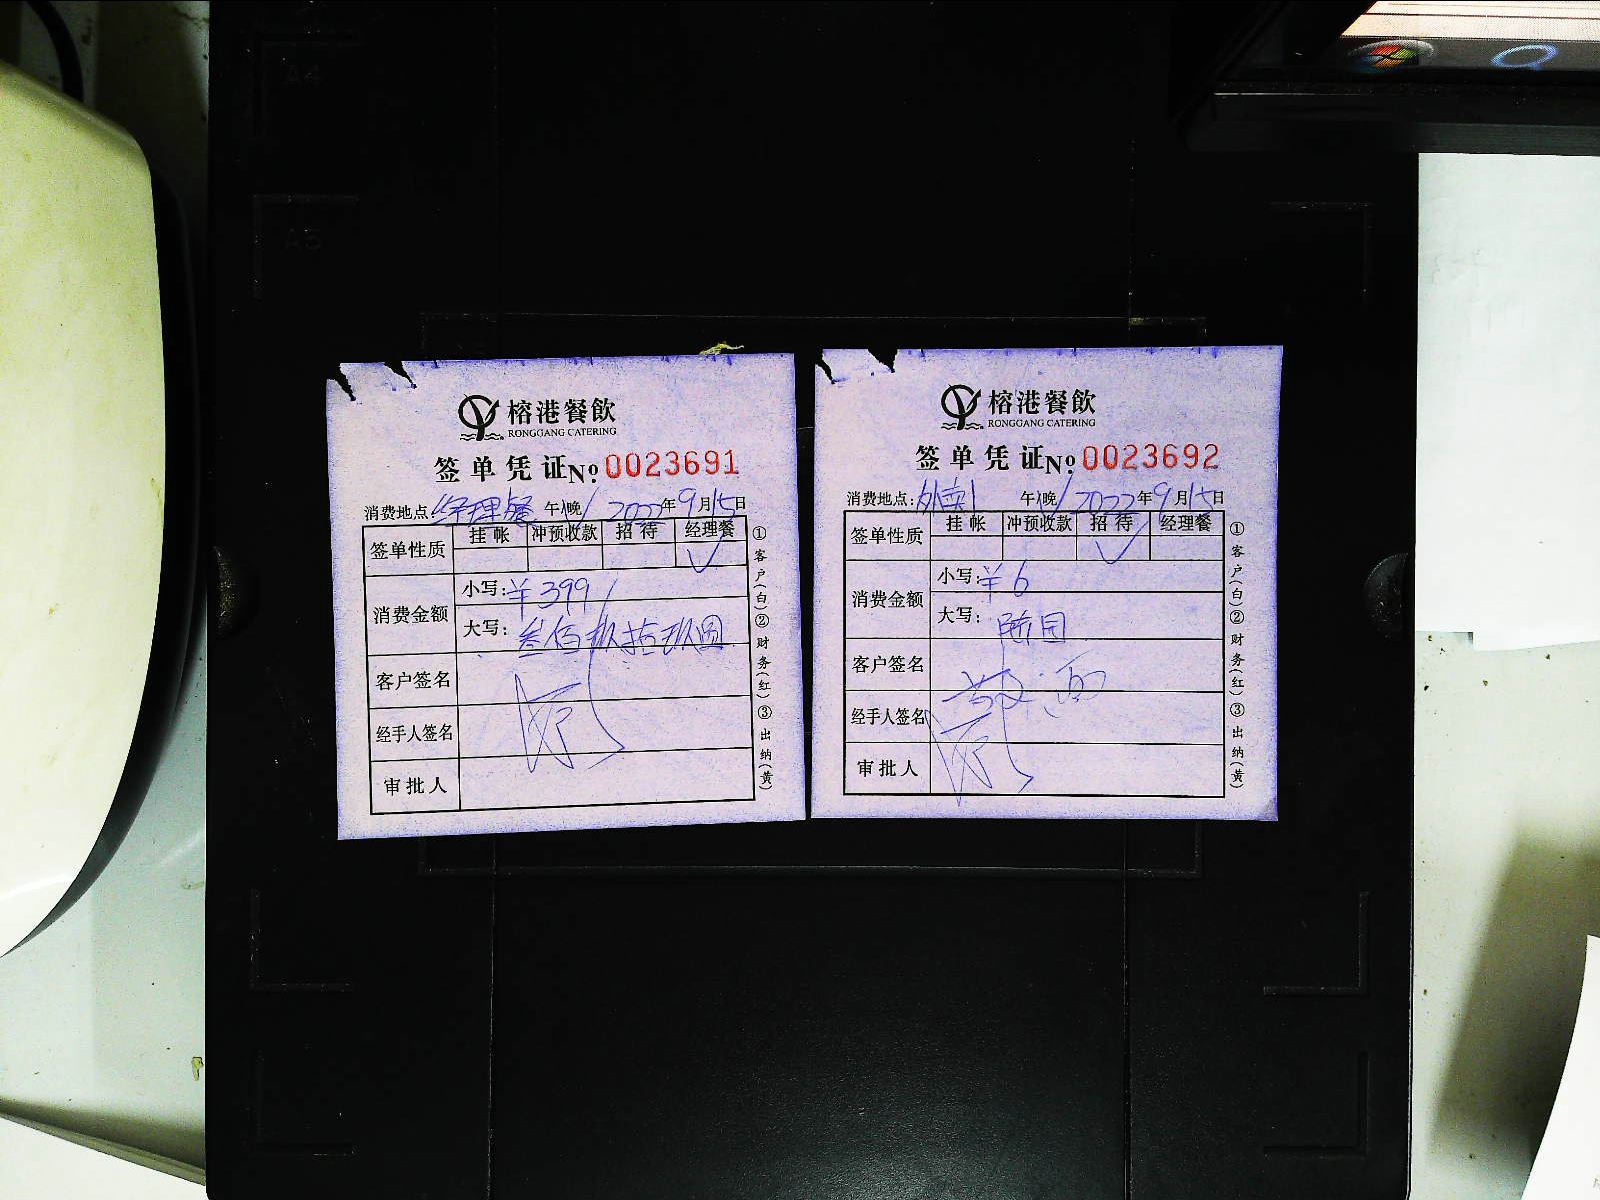 A4
A5
榕港餐飲
RONGGANG CATERING
签单凭证No:0023691
消费地点:经理餐 午\晚/ 2022年9月15日
签单性质 挂帐 冲预收款 招待 经理餐
✓
消费金额 小写:¥399
大写:叁佰玖拾玖圆
客户签名
经手人签名
审批人
①客户(白)②财务(红)③出纳(黄)
榕港餐飲
RONGGANG CATERING
签单凭证No:0023692
消费地点:外卖 午\晚/ 2022年9月15日
签单性质 挂帐 冲预收款 招待 经理餐
✓
消费金额 小写:¥6
大写:陆圆
客户签名
经手人签名
审批人
①客户(白)②财务(红)③出纳(黄)